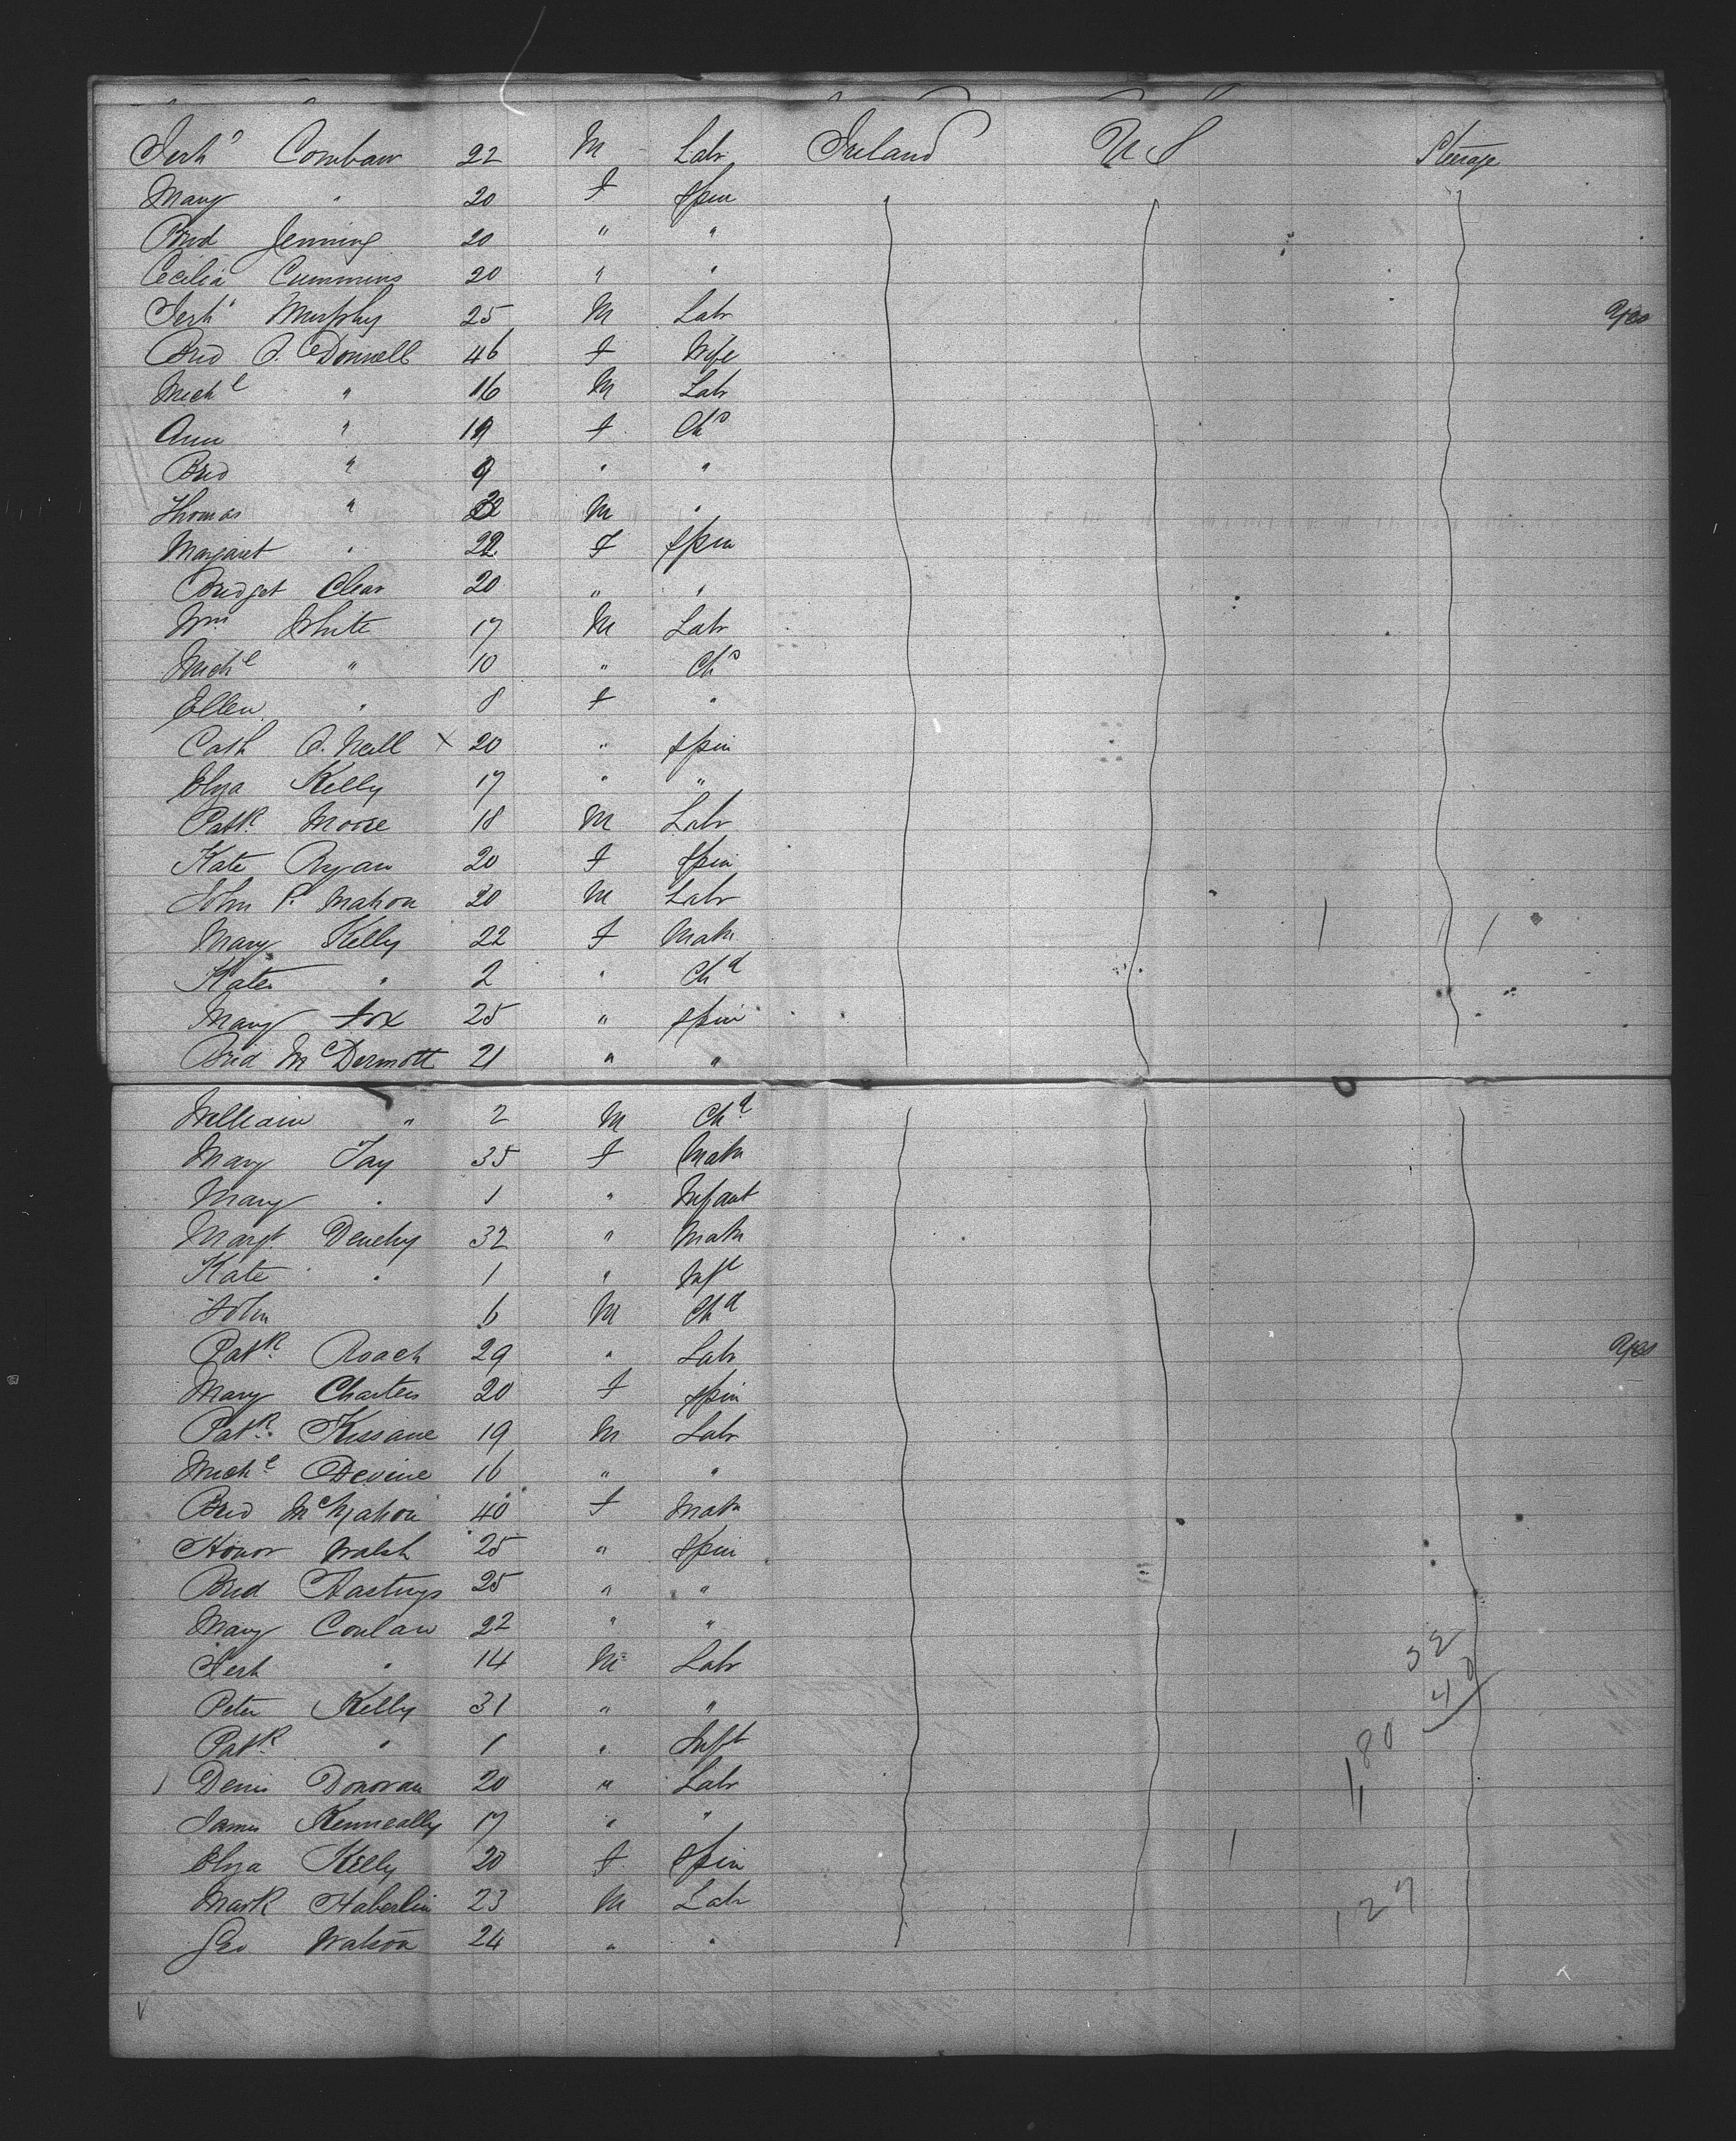 Jerh Conban 22 M Labr Ireland U S Steerage
Mary " 20 F Spin
Brid Jenning 20 " "
Cecilia Cummins 20 " "
Jerh Murphy 25 M Labr Yes
Brid O'Donnell 46 F Wife
Michl " 16 M Labr
Ann " F Chd
Brid " 9 " "
Thomas " M "
Margaret " 22 F Spin
Bridget Clear 20 " "
Wm White 17 M Labr
Michl " 10 " Chd
Ellen " 8 F "
Cath O.Neill X 20 " Spin
Eliza Kelly 17 " "
Patk Moore 18 M Labr
Kate Ryan 20 F Spin
John P. Mahon 20 M Labr
Mary Kelly 22 F Matn
Kate " 2 " Chd
Mary Fox 25 " Spin
Brid McDermott 21 " "
William " 2 M Chd
Mary Fay 35 F Matn
Mary " 1 " Infant
Margt Denehy 32 " Matn
Kate " 1 " Inft
John 6 M Chd
Patk Roach 29 " Labr Yes
Mary Charters 20 F Spin
Patk Kissane 19 M Labr
Michl Devine 16 " "
Brid McMahon 40 F Matn
Honor Walsh 25 " Spin
Brid Hastings 25 " "
Mary Conlan 22 " "
Jerh " 14 M Labr 32
Peter Kelly 31 " " 40
Patk " 1 " Inft 80
Denis Donovan 20 " Labr
James Kenneally 17 " "
Eliza Kelly 20 F Spin
Mark Haberlin 23 M Labr 127
Geo Watson 24 " "